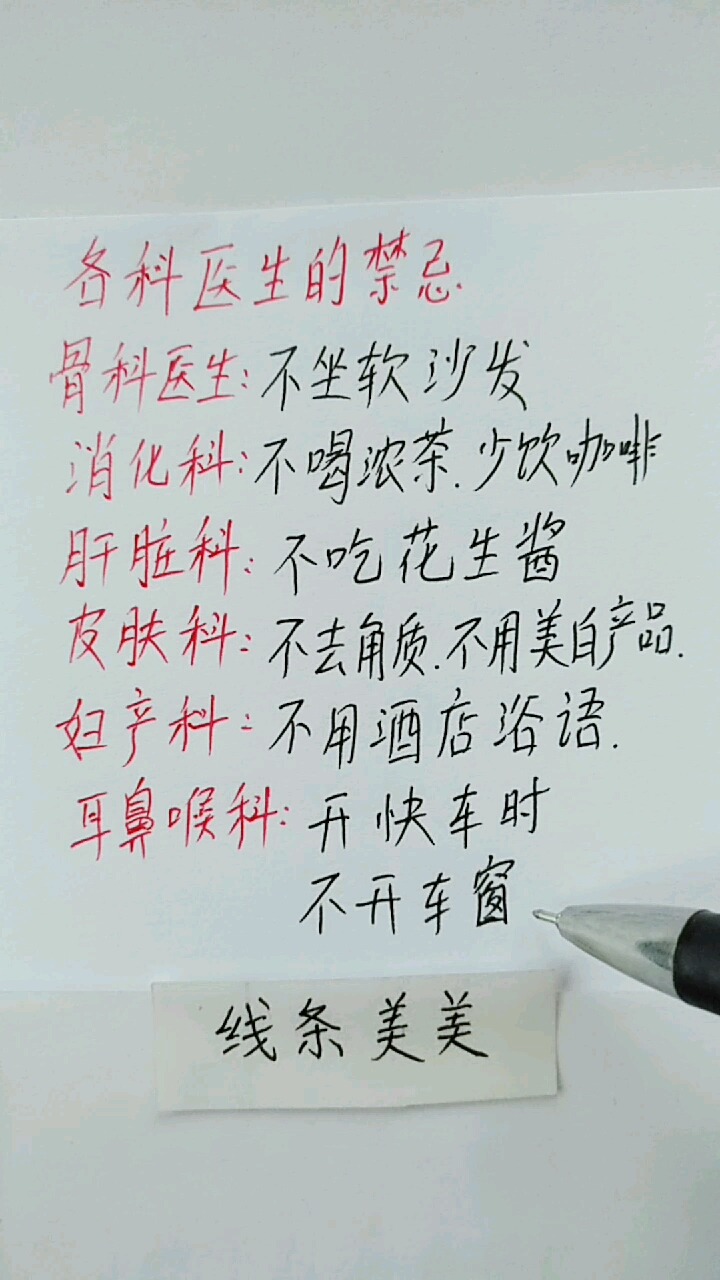 各科医生的禁忌.
骨科医生:不坐软沙发
消化科:不喝浓茶.少饮咖啡
肝脏科:不吃花生酱
皮肤科:不去角质.不用美白产品.
妇产科:不用酒店浴语.
耳鼻喉科:开快车时
不开车窗
线条美美